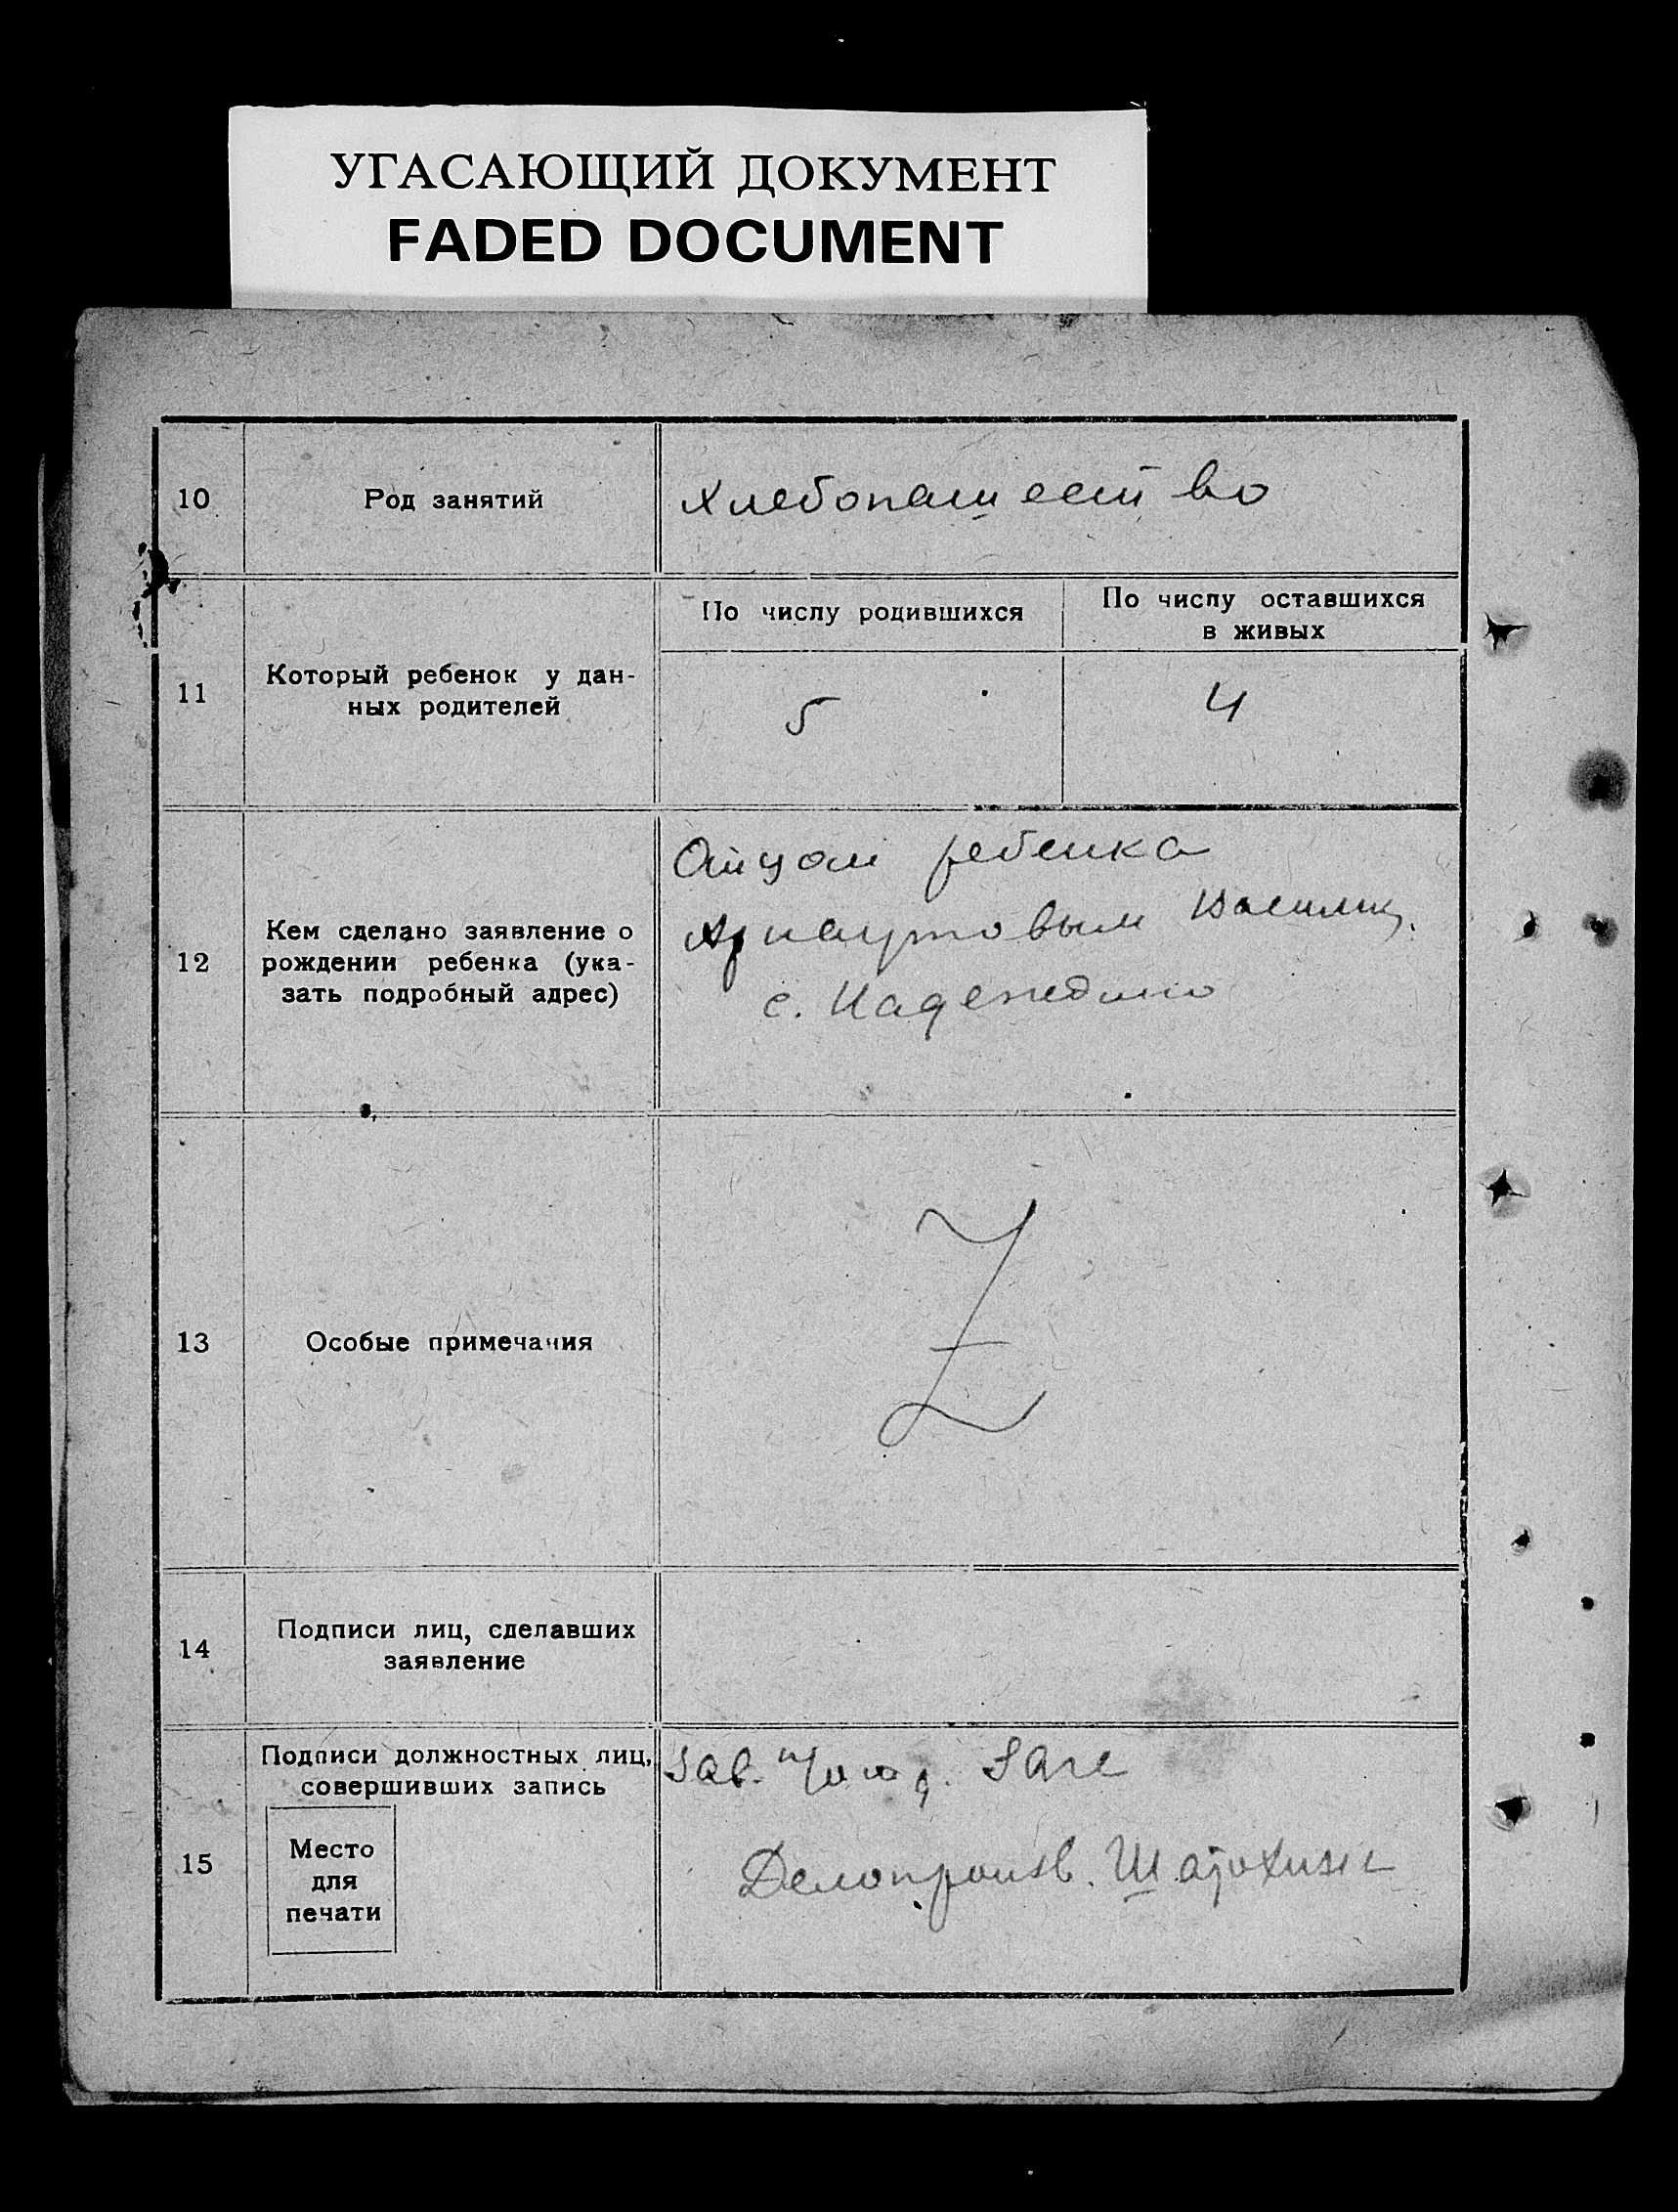 УГАСАЮЩИЙ ДОКУМЕНТ
FADED DOCUMENT
10
Род занятий
Хлебопашество
11
Который ребенок у дан-
ных родителей
По числу родившихся
По числу оставшихся
в живых
5
4
12
Кем сделано заявление о
рождении ребенка (ука-
зать подробный адрес)
Отцом ребенка
Арнаутовым
с. Надеждино
13
Особые примечания
Z
14
Подписи лиц, сделавших
заявление
15
Подписи должностных лиц,
совершивших запись
Место
для
печати
Зав.
Делопроизв.